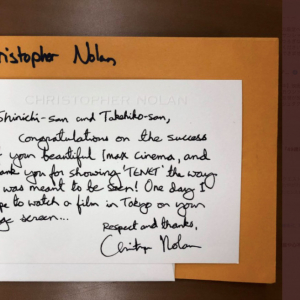 ristopher Nolan
CHRISTOPHER NOLAN
Shinichi-san and Takehiko-san,
Congratulations on the success
your beautiful Imax cinema, and
ank you for showing 'TENET' the way
was meant to be seen! One day I
pe to watch a film in Tokyo on your
ge screen...
Respect and thanks,
Nolan